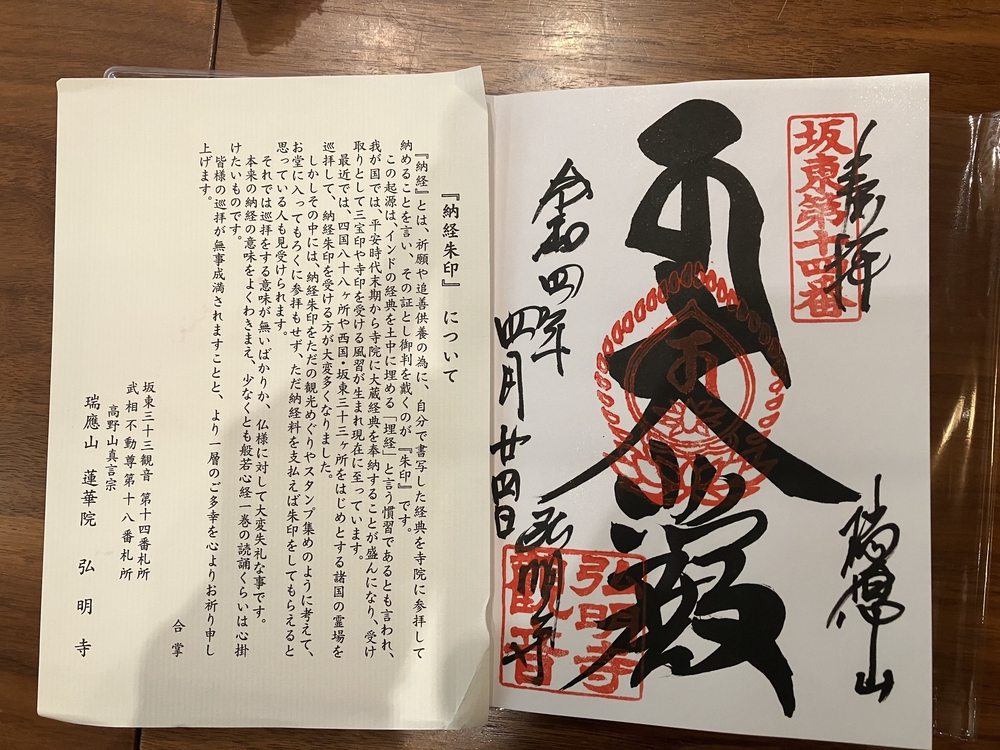 奉拝
坂東第十四番
瑞應山
大悲殿
令和四年
四月廿四日
弘明寺
弘明寺
観音
『納経朱印』 について
『納経』とは、祈願や追善供養の為に、自分で書写した経典を寺院に参拝して
納めることを言い、その証とし御判を戴くのが『朱印』です。
この起源は、インドの経典を土中に埋める「埋経」と言う慣習であるとも言われ、
我が国では、平安時代末期から寺院に大蔵経典を奉納することが盛んになり、受け
取りとして三宝印や寺印を受ける風習が生まれ現在に至っています。
最近では、四国八十八ヶ所や西国・坂東三十三ヶ所をはじめとする諸国の霊場を
巡拝して、納経朱印を受ける方が大変多くなりました。
しかしその中には、納経朱印をただの観光めぐりやスタンプ集めのように考えて、
お堂に入ってもろくに参拝もせず、ただ納経料を支払えば朱印をしてもらえると
思っている人も見受けられます。
それでは巡拝をする意味が無いばかりか、仏様に対して大変失礼な事です。
本来の納経の意味をよくわきまえ、少なくとも般若心経一巻の読誦くらいは心掛
けたいものです。
皆様の巡拝が無事成満されますことと、より一層のご多幸を心よりお祈り申し
上げます。
合掌
坂東三十三観音 第十四番札所
武相不動尊第十八番札所
高野山真言宗
瑞應山 蓮華院 弘明寺